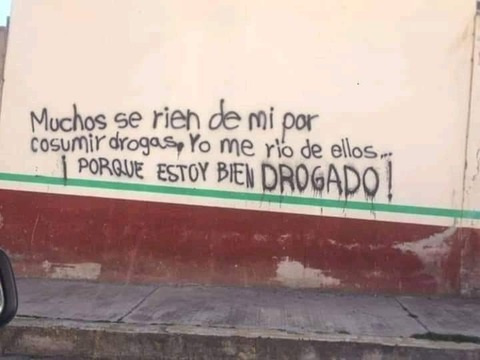 Muchos se rien de mi por
cosumir drogas, Yo me rio de ellos...
¡PORQUE ESTOY BIEN DROGADO!